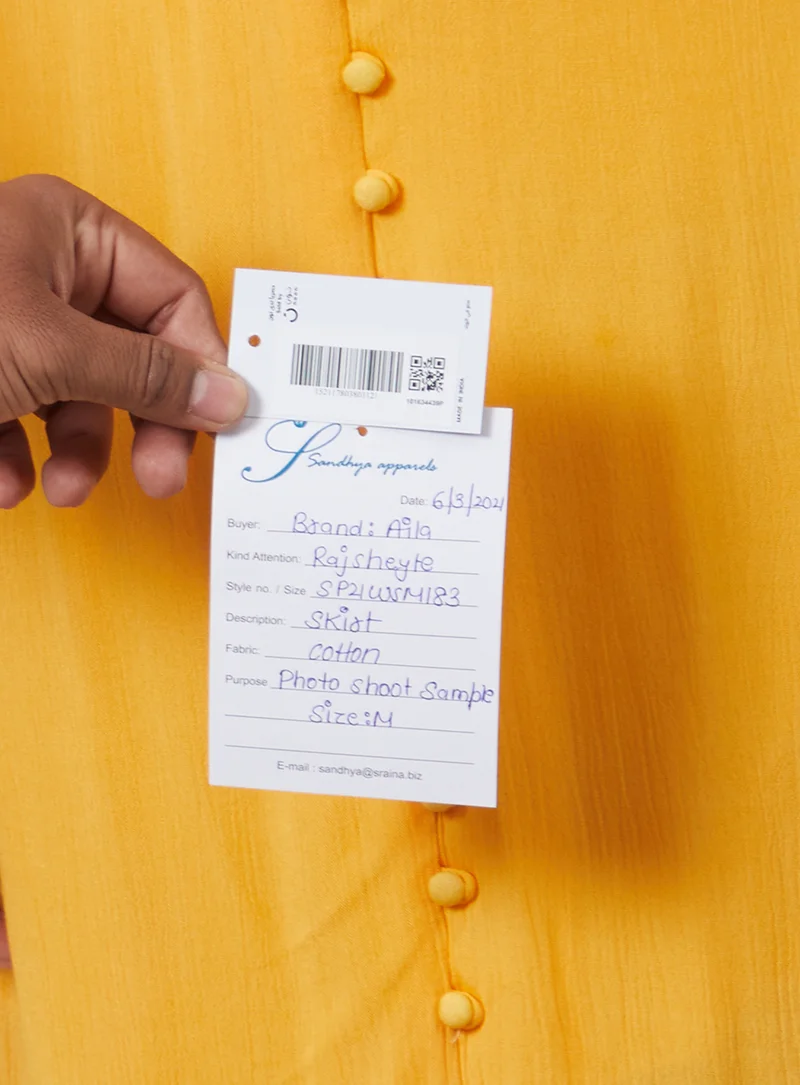 132117803803121
181634439P
MADE IN INDIA
Sandhya apparels
Date: 6/3/2021
Buyer: Brand: Aila
Kind Attention: Rajsheyte
Style no. / Size SP21WSM183
Description: Skirt
Fabric: cotton
Purpose Photo shoot sample
Size: M
E-mail : sandhya@sraina.biz